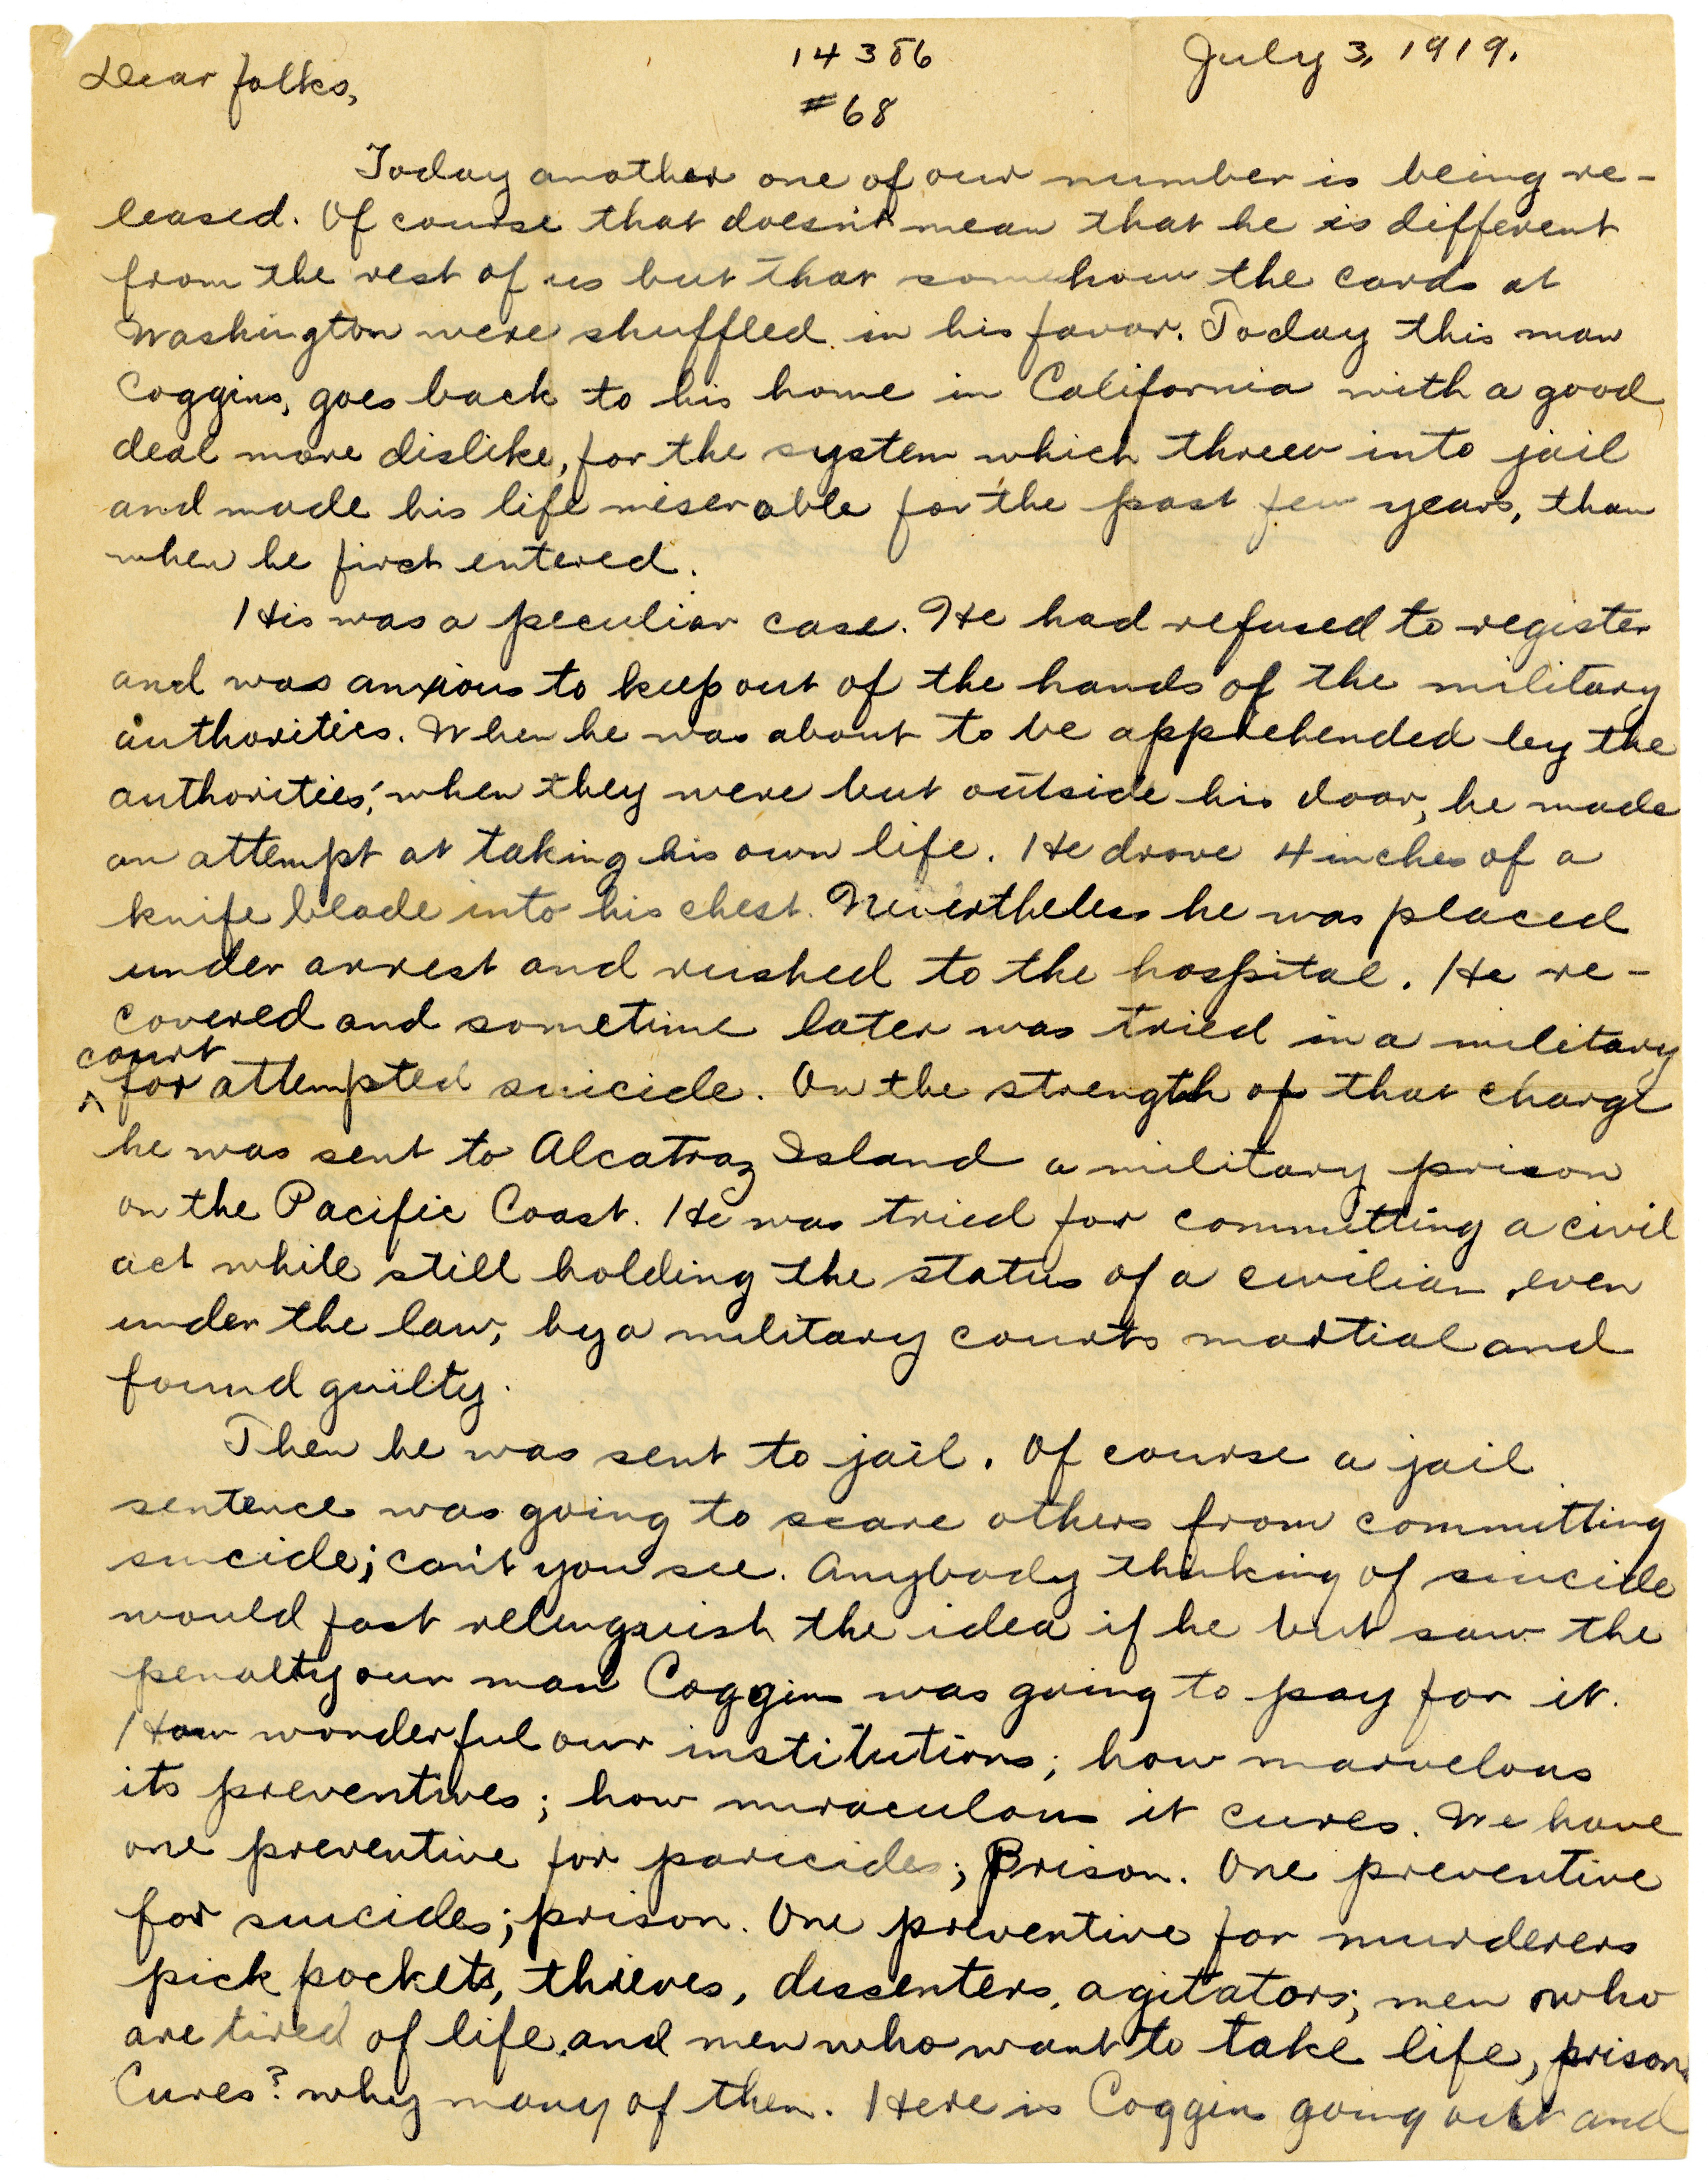 14386
July 3, 1919.
#68
Dear folks,
Today another one of our number is being re-
leased. Of course that doesn't mean that he is different
from the rest of us but that somehow the cards at
Washington were shuffled in his favor. Today this man
Coggins, goes back to his home in California with a good
deal more dislike, for the system which threw into jail
and made his life miserable for the past few years, than
when he first entered.
His was a peculiar case. He had refused to register
and was anxious to keep out of the hands of the military
authorities. When he was about to be apprehended by the
authorities, when they were but outside his door, he made
an attempt at taking his own life. He drove 4 inches of a
knife blade into his chest. Nevertheless he was placed
under arrest and rushed to the hospital. He re-
covered and sometime later was tried in a military
court
^ for attempted suicide. On the strength of that charge
he was sent to Alcatraz Island a military prison
on the Pacific Coast. He was tried for committing a civil
act while still holding the status of a civilian, even
under the law, by a military courts martial and
found guilty.
Then he was sent to jail. Of course a jail
sentence was going to scare others from committing
suicide; can't you see. Anybody thinking of suicide
would fast relinquish the idea if he but saw the
penalty our man Coggins was going to pay for it.
How wonderful our institutions; how marvelous
its preventives; how miraculous it cures. We have
one preventive for paricides; Prison. One preventive
for suicides; prison. One preventive for murderers
pick pockets, thieves, dissenters, agitators; men who
are tired of life, and men who want to take life, prison.
Cures? why many of them. Here is Coggins going out and